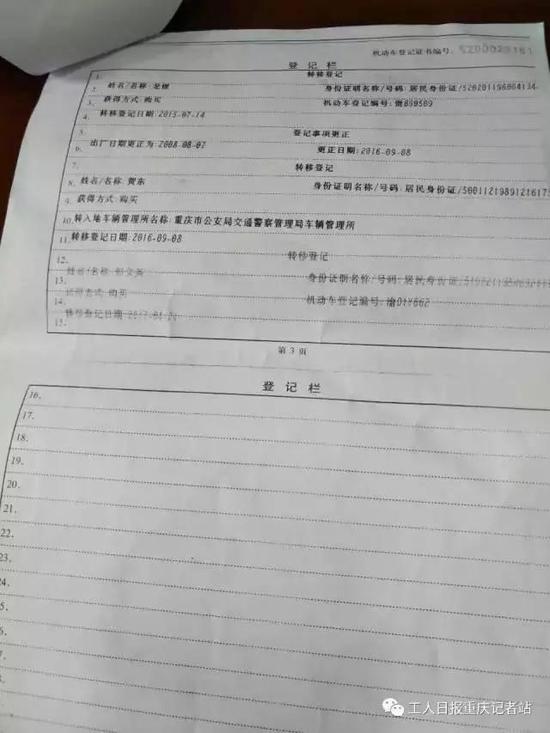 机动车登记证书编号:5200029161
登 记 栏
1. 转移登记
2. 姓名/名称: 身份证明名称/号码:居民身份证/
3. 获得方式:购买 机动车登记编号:贵
4. 转移登记日期:2015-07-14
5. 登记事项更正
6. 出厂日期更正为:2008-08-07 更正日期:2016-09-08
7. 转移登记
8. 姓名/名称:贺东 身份证明名称/号码:居民身份证/
9. 获得方式:购买
10. 转入地车辆管理所名称:重庆市公安局交通警察管理局车辆管理所
11. 转移登记日期:2016-09-08
12. 转移登记
13. 姓名/名称: 身份证明名称/号码:居民身份证/
获得方式:购买 机动车登记编号:渝
15. 转移登记日期:
第 3 页
登 记 栏
16.
17.
18.
19.
20.
21.
22.
23.
24.
5.
6.
7.
8.
9.
0.
工人日报重庆记者站